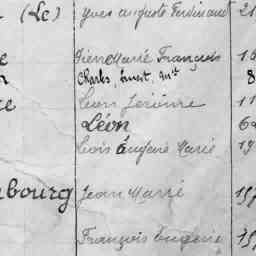 (Le) Yves auguste Ferdinand 21
Pierre Marie François 16
Charles, Ernest, 8
Léon Jérôme 11
Léon 64
Louis Eugène Marie 19
bourg Jean Marie 19
François Eugène 19